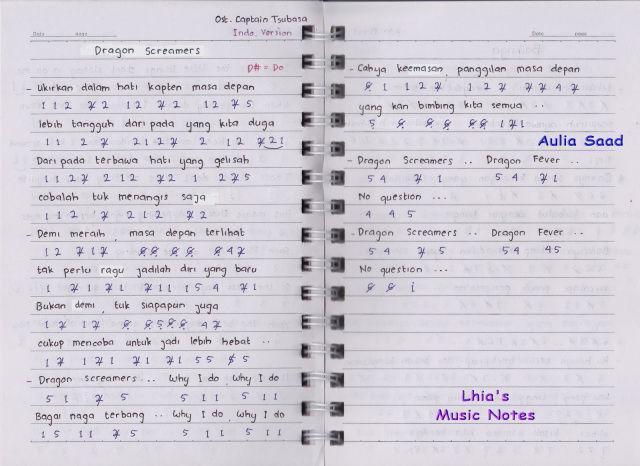 Ost. Captain Tsubasa
Indo. Version
Dragon Screamers
D# = Do
- Ukirkan dalam hati kapten masa depan
1 1 2 7 2 1 2 7 2 1 2 7 5
lebih tangguh dari pada yang kita duga
1 1 2 7 2 1 2 7 2 1 2 7 2 1
Dari pada terbawa hati yang gelisah
1 1 2 7 2 1 2 7 2 1 2 7 5
cobalah tuk menangis saja
1 1 2 7 2 1 2 7 2
- Demi meraih, masa depan terlihat
1 2 7 1 7
tak perlu ragu jadilah diri yang baru
1 7 1 7 1 7 1 1 1 5 4 7 1
Bukan demi, tuk siapapun juga
1 7 1 7
cukup mencoba untuk jadi lebih hebat ..
1 7 1 7 1 7 1 7 1 5 5 5 5
- Dragon Screamers .. Why I do, Why I do
5 1 7 5 5 1 1 5 1 1
Bagai naga terbang .. Why I do, Why I do
1 5 1 1 7 5 5 1 1 5 1 1
Date page
- Cahya keemasan, panggilan masa depan
6 1 1 2 7 1 2 7 7 7 4 7
yang kan bimbing kita semua ..
5 6 6 6 6 6 1 7 1
Aulia Saad
- Dragon Screamers .. Dragon Fever ..
5 4 7 1 5 4 7 1
No question ...
4 4 5
- Dragon Screamers .. Dragon Fever ...
5 4 7 5 5 4 4 5
No question ...
6 6 i
Lhia's
Music Notes